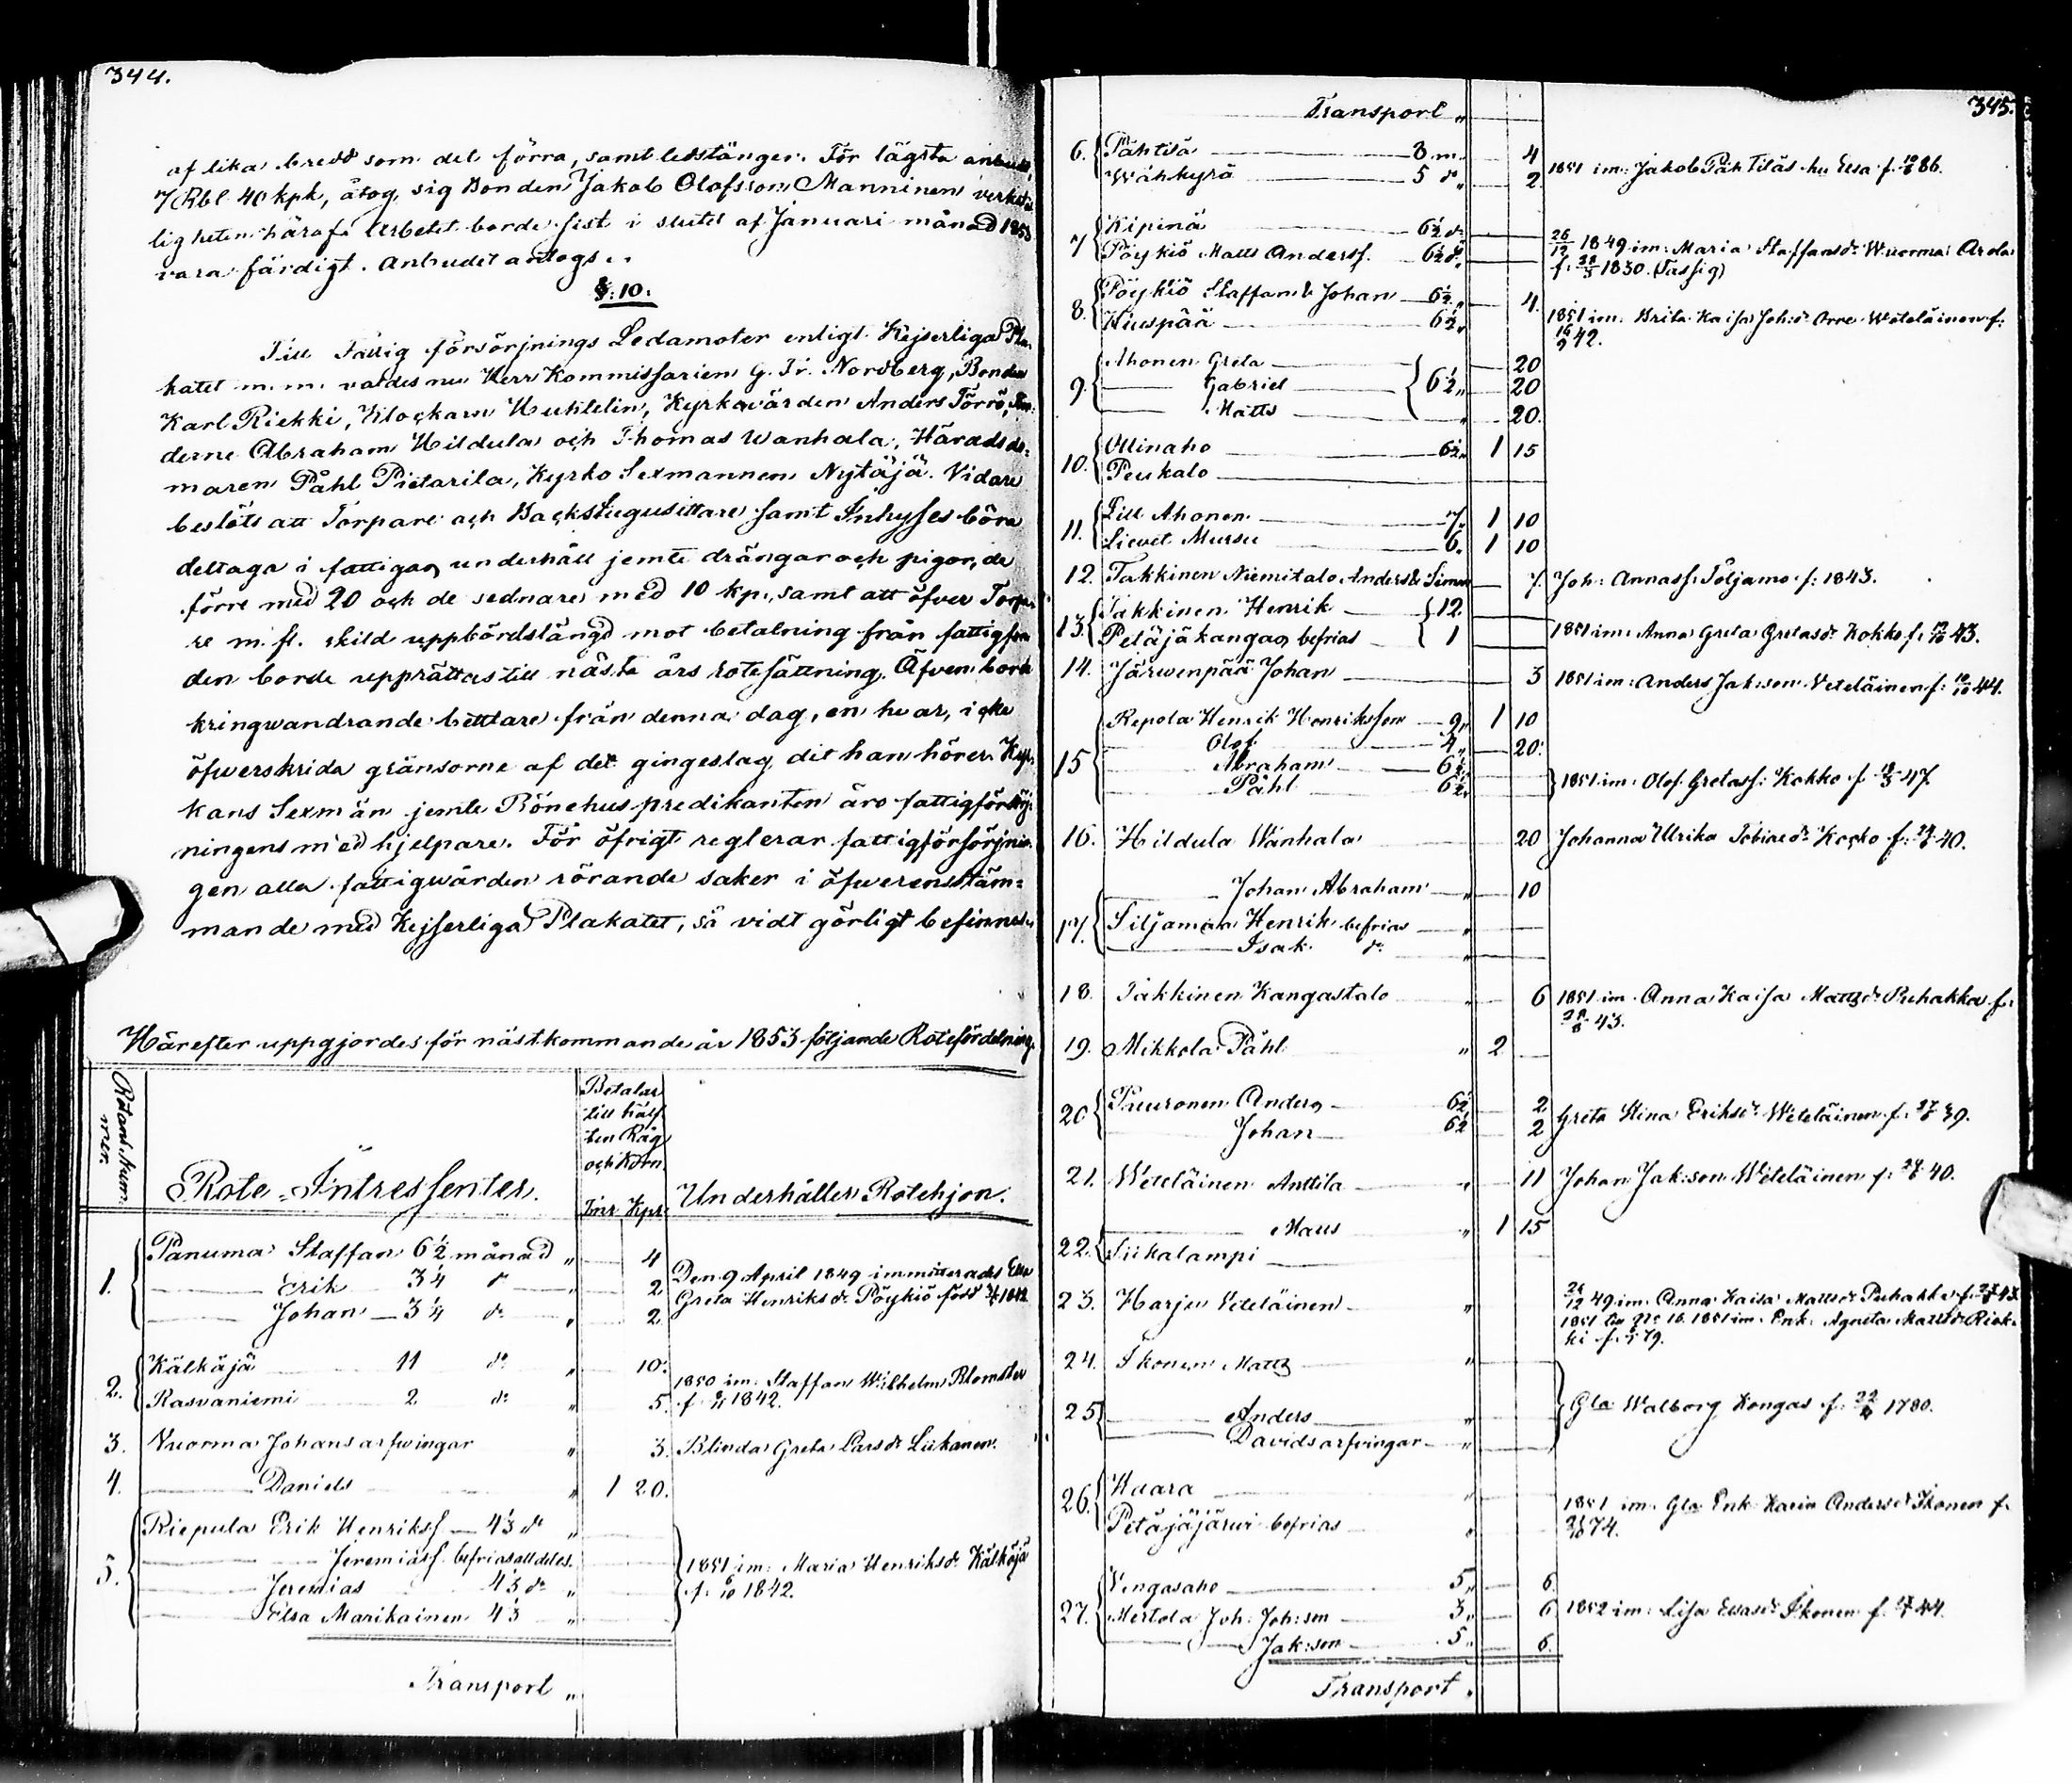 344.
af lika bredd som det förra, samt ledstänger. För lägsta anbudet,
7 Rbl 40 kpk, åtog sig Bonden Jakob Olofsson Manninen verkstäl
ligheten häraf. Arbetet borde sist i slutet af Januari månad 1853
vara färdigt. Anbudet antogs..
§:10.
Till Fattig försörjnings Ledamoter enligt Kejserliga Pla
katet m. m. valdes nu Herr Kommissarien G. Fr. Nordberg, Bonden
Karl Riekki, Klockarn Heikelin, Kyrkovärden Anders Törrö, Bön
derne Abraham Hildula och Thomas Wanhala, Härads do-
maren Påhl Pietarila, Kyrko Sexmannen Nytäjä. Vidare
beslöts att Torpare och Backstugusittare samt Inhyses böra
deltaga i fattigas underhåll jemte drängar och pigor, de
förre med 20 och de sednare med 10 kp., samt att öfver Torpa
re m. fl. skild uppbördslängd mot betalning från fattigfon
den borde upprättas till nästa års rotesättning. Äfven borde
kringwandrande bettlare från denna dag, en hvar, icke
öfwerskrida gränsorne af det gingeslag, dit han hörer. Kyr
kans Sexmän jemte Bönehus predikanten äro fattigförsörj
ningens med hjelpare. För öfrigt reglerar fattigförsörjnin
gen alla fattigwården rörande saker i öfwerensstäm-
mande med Kejserliga Plakatet, så vidt görligt befinnes.
Härefter uppgjordes för nästkommande år 1853 följande Rotefördelning.
Rotans Num-
mer.
Rote-Intressenter.
Betalas
till hälf
ten Råg
och Korn.
Tnr Kpr.
Underhåller Rotehjon.
1. Panuma Staffan 6½ månad „ 4
Erik 3¼ do 2
Johan 3¼ do „ 2
Den 9 April 1849 immitterades Elsa
Greta Henriksdr Pöykiö född 1842
2. Kälkäjä 11 do „ 10.
Rasvaniemi 2 do „ 5.
1850 im: Staffan Wilhelm Blomster
f. 1842.
3. Vuorma Johans arfwingar „ 3. Blinda Greta Larsdr Liikanen.
4. Daniels „ 1 20.
5. Riepula Erik Henrikss. 4⅓ do „
Jeremiass. befrias alldeles.
Jeremias 4⅓ do „
Elsa Marikainen 4⅓ „
1851 im: Maria Henriksdr Kälkäjä
f. 1842.
Transport „
345.
Transport „
6. Pähtilä 8 m. 4
Wähkyrä 5 do „ 2
1851 im: Jakob Pähtiläs hu Elsa f. 86.
7 Kipinä 6½ do
Pöykiö Matts Anderss. 6½ do
26/12 1849 im: Maria Staffansdr Wuorma
f. 1830. (Tassig)
8. Pöykiö Staffan & Johan 6½ „ 4.
Kiuspää 6½ „
1851 im: Brita Kaisa Joh:dr Orre Weteläinen f.
42.
9. Ahonen Greta 20
Gabriel 6½ „ 20
Matts 20.
10. Ollinaho 6½ „ 1 15
Peukalo
11. Lill Ahonen 7. 1 10
Lievet Mursu 6. 1 10
12. Takkinen Niemitalo Anders & Simon 7. Joh: Annass. Töljamo f. 1843.
13. Takkinen Henrik 12.
Petäjäkangas befrias 1
1851 im: Anna Greta Gretasdr Kokko f. 43.
14. Järwenpää Johan 3 1851 im: Anders Jak:son Veteläinen f. 44.
15 Repola Henrik Henriksson 9 „ 1 10
Olof 4 „ 20.
Abraham 6½
Påhl 6½
1851 im: Olof Gretass. Kokko f. 47.
16. Hildula Wanhala 20 Johanna Ulrika Tobiaedr Kokko f. 40.
17. Johan Abraham „ 10
Siljamaa Henrik befrias „
Isak do „
18. Takkinen Kangastalo „ 6 1851 im. Anna Kaisa Mattsdr Puhakka f.
43.
19. Mikkola Påhl „ 2
20 Puuronen Anders 6½ 2
Johan 6½ 2
Greta Stina Eriksdr Weteläinen f. 39.
21. Weteläinen Anttila „ 11 Johan Jak:son Weteläinen f. 40.
22. Matts „ 1 15
Siikalampi
23. Harju Veteläinen „
49 im. Anna Kaisa Mattsdr Puhakka f. 43
1851 till No 18. 1851 im. Enk. Agneta Mattsdr Riek-
ki f. 79.
24. Ikonen Matts „
25 Anders „
Davids arfvingar „
Gla Walborg Kongas f. 1780.
26. Haara „
Petäjäjärwi befrias „
1851 im. Gla Enk. Karin Andersdr Ikonen f.
74.
27. Vengasaho 5 „ 6.
Mertola Joh: Joh:son 3 „ 6
Jak:son 5 „ 6.
1852 im: Lisa Elsasdr Ikonen f. 44.
Transport „